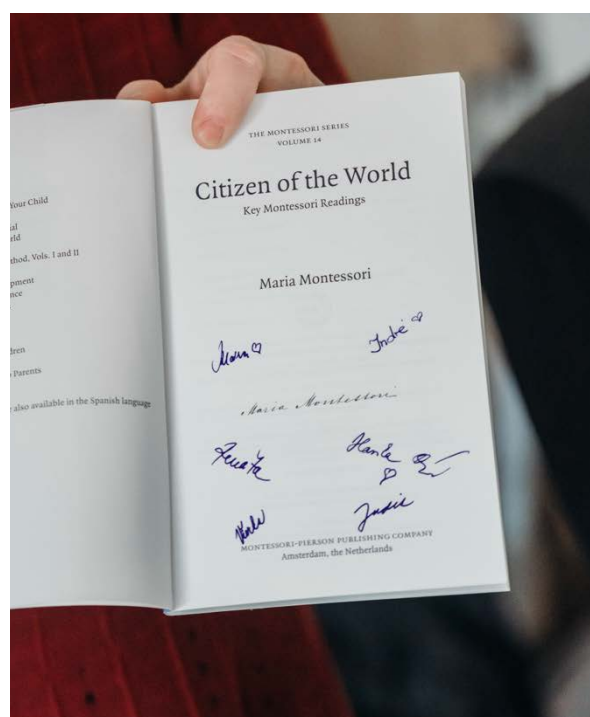 Your Child
rld
thod, Vols. I and II
pment
nce
dren
Parents
also available in the Spanish language
THE MONTESSORI SERIES
VOLUME 14
Citizen of the World
Key Montessori Readings
Maria Montessori
Indrė
Maria Montessori
Renata
MONTESSORI-PIERSON PUBLISHING COMPANY
Amsterdam, the Netherlands